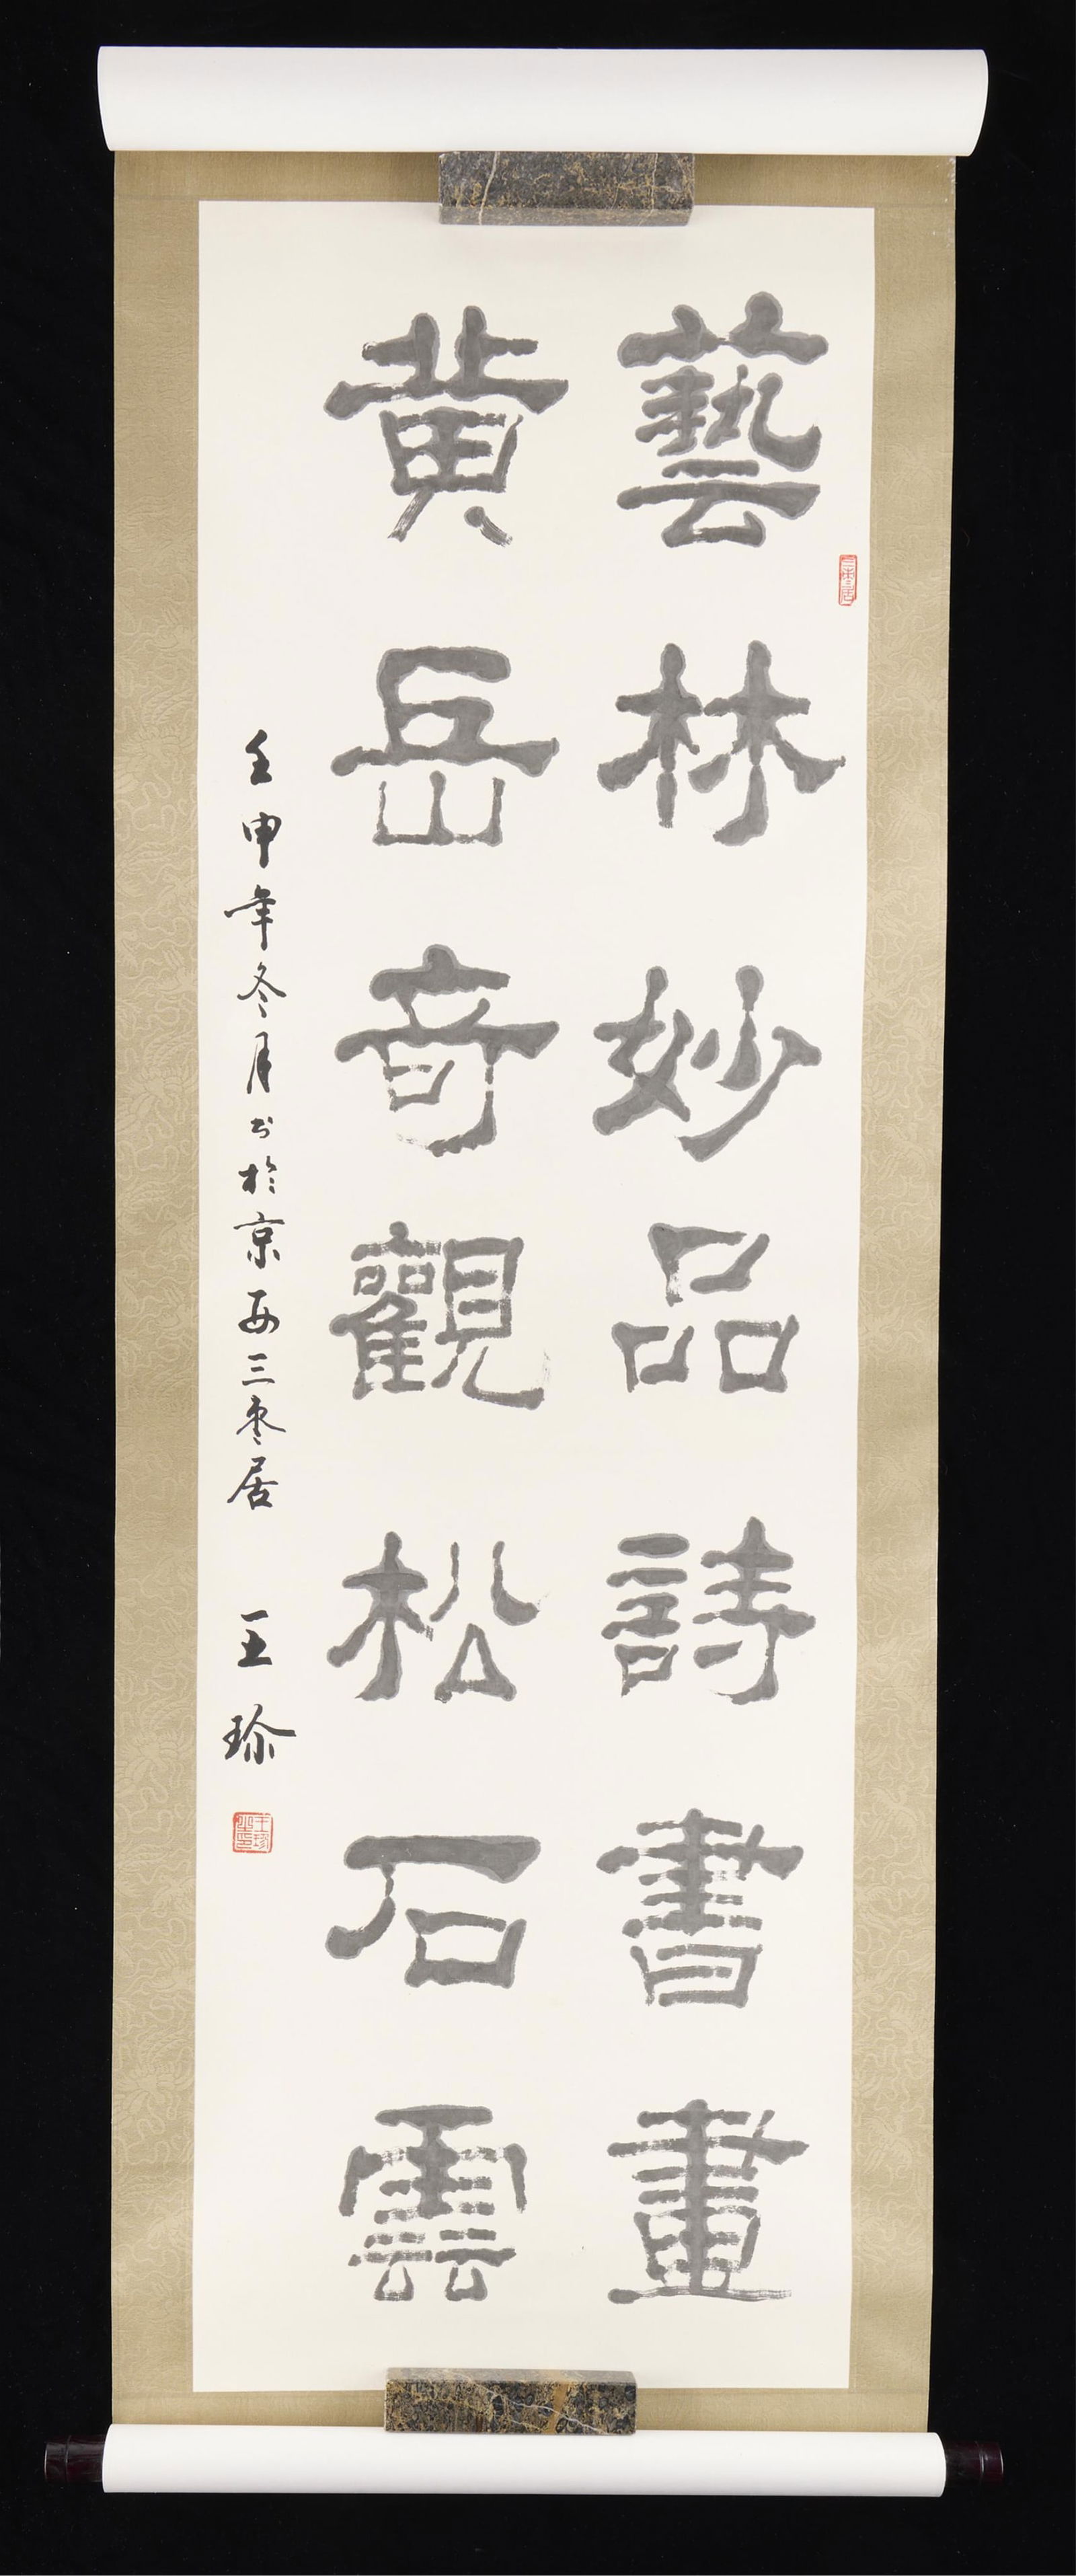 藝林妙品詩書畫
黄岳奇觀松石雲
壬申年冬月书於京西三枣居 王琢